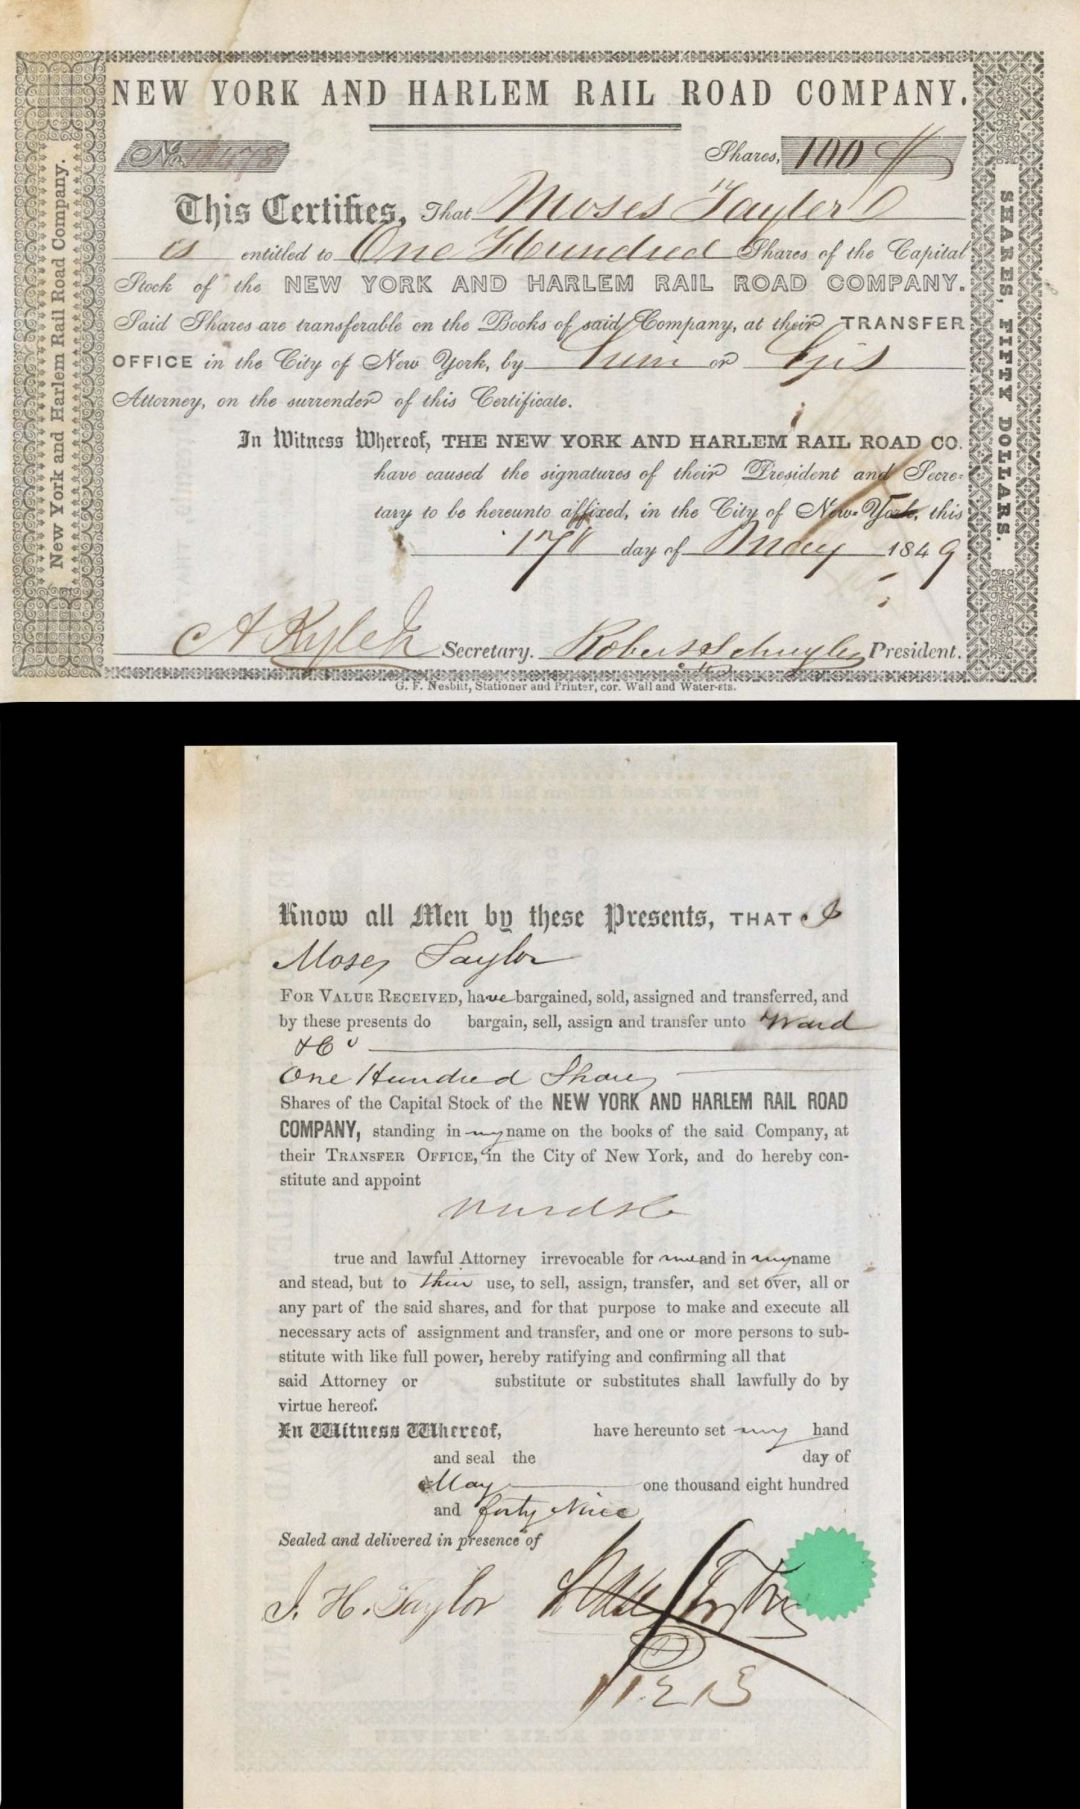 NEW YORK AND HARLEM RAIL ROAD COMPANY.
No.
Shares, 100
This Certifies, That Moses Taylor
is entitled to One Hundred Shares of the Capital
Stock of the NEW YORK AND HARLEM RAIL ROAD COMPANY.
Said Shares are transferable on the Books of said Company, at their TRANSFER
OFFICE in the City of New York, by him or his
Attorney, on the surrender of this Certificate.
In Witness Whereof, THE NEW YORK AND HARLEM RAIL ROAD CO.
have caused the signatures of their President and Secre-
tary to be hereunto affixed, in the City of New-York, this
17th day of May 1849
A Kyle Jr Secretary. Robert Schuyler President.
G. F. Nesbitt, Stationer and Printer, cor. Wall and Water-sts.
New York and Harlem Rail Road Company.
SHARES, FIFTY DOLLARS.
Know all Men by these Presents, THAT I
Moses Taylor
FOR VALUE RECEIVED, have bargained, sold, assigned and transferred, and
by these presents do bargain, sell, assign and transfer unto Ward
& Co
One Hundred Shares
Shares of the Capital Stock of the NEW YORK AND HARLEM RAIL ROAD
COMPANY, standing in my name on the books of the said Company, at
their TRANSFER OFFICE, in the City of New York, and do hereby con-
stitute and appoint
Ward & Co
true and lawful Attorney irrevocable for me and in my name
and stead, but to their use, to sell, assign, transfer, and set over, all or
any part of the said shares, and for that purpose to make and execute all
necessary acts of assignment and transfer, and one or more persons to sub-
stitute with like full power, hereby ratifying and confirming all that
said Attorney or substitute or substitutes shall lawfully do by
virtue hereof.
In Witness Whereof, have hereunto set my hand
and seal the day of
May one thousand eight hundred
and forty Nine
Sealed and delivered in presence of
J. H. Taylor